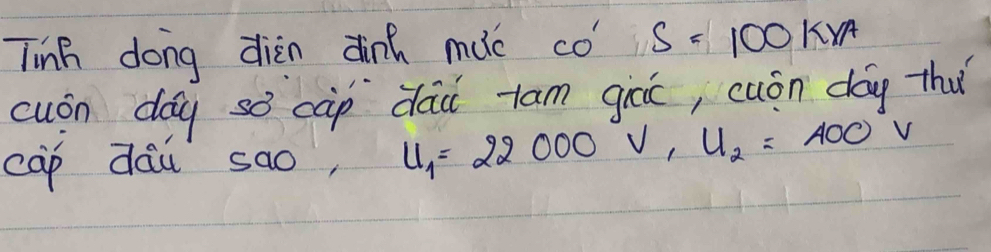 Tính dòng điện định mức có S = 100 KVA
cuộn dây sơ cấp đấu tam giác, cuộn dây thứ
cấp đấu sao, U₁= 22 000 V, U₂ = 400 V